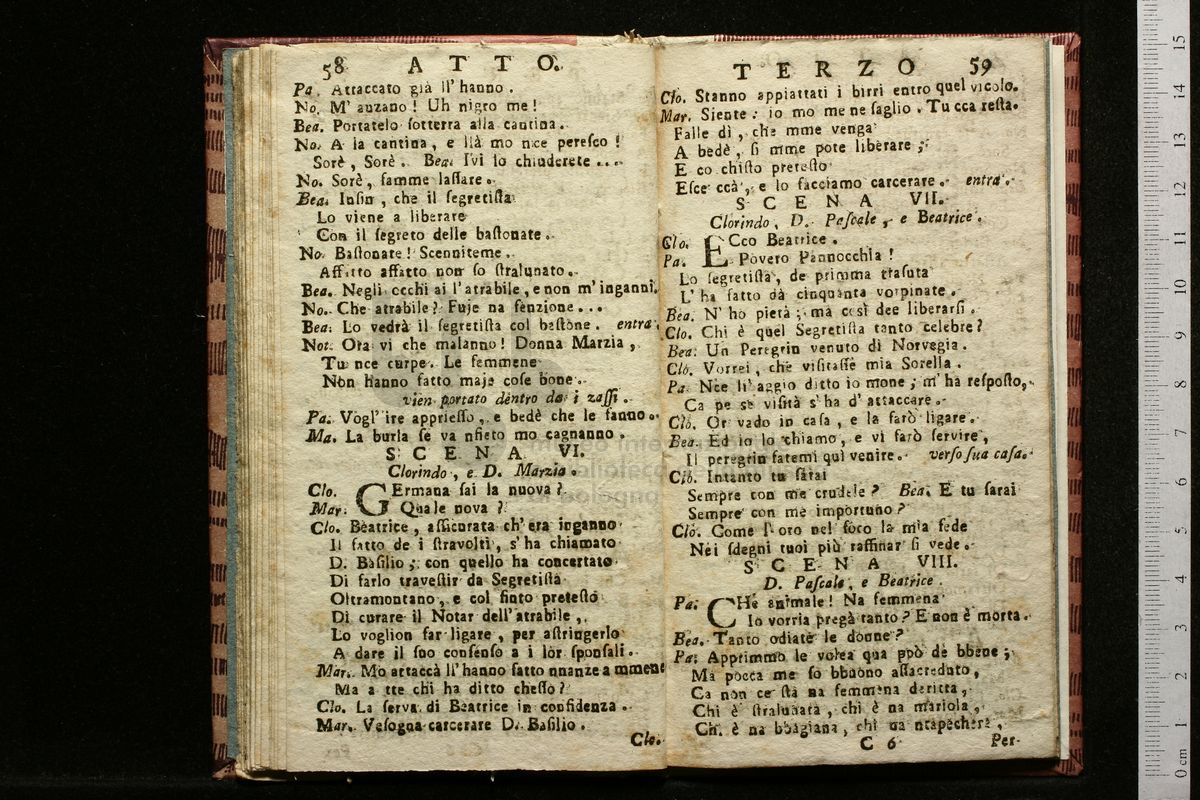 58 ATTO.
Pa. Attaccato già ll' hanno.
No. M' auzano! Uh nigro me!
Bea. Portatelo sotterra alla cantina.
No. A la cantina, e llà mo nce peresco!
Sorè, Sorè. Bea. Ivi lo chiuderete ....
No. Sorè, famme lassare.
Bea. Insin, che il segretista
Lo viene a liberare
Con il segreto delle bastonate.
No. Bastonate! Scenniteme.
Affatto affatto non so stralunato.
Bea. Negli occhi ai l' atrabile, e non m' inganni.
No. Che atrabile? Fuje na fenzione...
Bea. Lo vedrà il segretista col bastone. entra.
Not. Ora vi che malanno! Donna Marzia,
Tu nce curpe. Le femmene
Non hanno fatto maje cose bone.
vien portato dentro da i zaffi.
Pa. Vogl' ire appriesso, e bedè che le fanno.
Ma. La burla se va nfieto mo cagnanno.
SCENA VI.
Clorindo, e D. Marzia.
Clo. GErmana sai la nuova?
Mar. Quale nova?
Clo. Beatrice, assicurata ch' era inganno
Il fatto de i stravolti, s' ha chiamato
D. Basilio; con quello ha concertato
Di farlo travestir da Segretista
Oltramontano, e col finto pretesto
Di curare il Notar dell' atrabile,
Lo voglion far ligare, per astringerlo
A dare il suo consenso a i lor sponsali.
Mar. Mo attaccà ll' hanno fatto nnanze a mmene
Ma a tte chi ha ditto chesso?
Clo. La serva di Beatrice in confidenza.
Mar. Vesogna carcerare D. Basilio.
Clo.
TERZO 59
Clo. Stanno appiattati i birri entro quel vicolo.
Mar. Siente: io mo me ne saglio. Tu cca resta.
Falle dì, che mme venga
A bedè, si mme pote liberare;
E co chisto pretesto
Esce ccà, e lo facciamo carcerare. entra.
SCENA VII.
Clorindo, D. Pascale, e Beatrice.
Clo. ECco Beatrice.
Pa. Povero Pannocchia!
Lo segretista, de primma trasuta
L' ha fatto dà cinquanta vorpinate.
Bea. N' ho pietà; ma così dee liberarsi.
Clo. Chi è quel Segretista tanto celebre?
Bea. Un Peregrin venuto di Norvegia.
Clo. Vorrei, che visitasse mia Sorella.
Pa. Nce ll' aggio ditto io mone; m' ha resposto,
Ca pe se visità s' ha d' attaccare.
Clo. Or vado in casa, e la farò ligare.
Bea. Ed io lo chiamo, e vi farò servire,
Il peregrin fatemi qui venire. verso sua casa.
Clo. Intanto tu sarai
Sempre con me crudele? Bea. E tu sarai
Sempre con me importuno?
Clo. Come l' oro nel foco la mia fede
Nei sdegni tuoi più raffinar si vede.
SCENA VIII.
D. Pascale, e Beatrice.
Pa. CHe animale! Na femmena
Io vorria pregà tanto? E non è morta.
Bea. Tanto odiate le donne?
Pa. Apprimmo le volea qua ppò de bbene;
Ma pocca me so bbuono assacreduto,
Ca non ce stà na femmena deritta,
Chi è stralunata, chi è na mariola,
Chi è na bbagiana, chi na ntapechera,
C 6 Per-